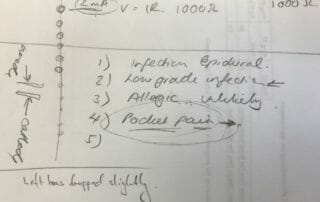 12 mA V = IR. 1000Ω 1000Ω
1) Infection Epidural.
2) Low grade infection
3) Allergic... unlikely.
4) Pocket pain
5)
Cathode
Left has dropped slightly.